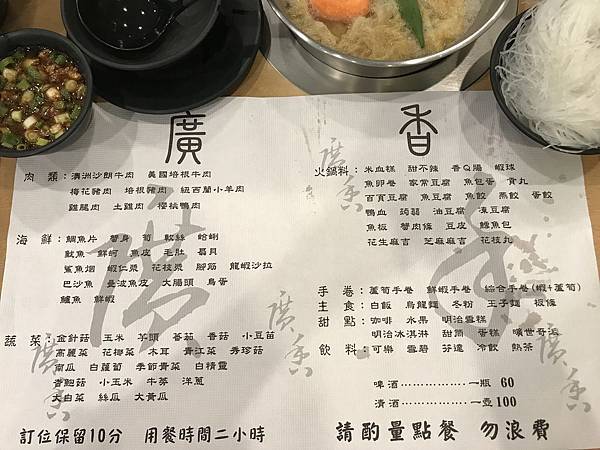 廣香
肉 類：澳洲沙朗牛肉 美國培根牛肉
梅花豬肉 培根豬肉 紐西蘭小羊肉
雞腿肉 土雞肉 櫻桃鴨肉
海 鮮：鯛魚片 蟹身 蚵 軟絲 蛤蜊
魷魚 鮮蚵 魚皮 毛肚 扇貝
鯊魚烟 蝦仁漿 花枝漿 腳筋 龍蝦沙拉
巴沙魚 曼波魚皮 大腸頭 鳥蛋
鱸魚 鮮蝦
蔬 菜：金針菇 玉米 芋頭 蕃茄 香菇 小豆苗
高麗菜 花椰菜 木耳 青江菜 秀珍菇
南瓜 白蘿蔔 季節青菜 白精靈
杏鮑菇 小玉米 牛蒡 洋蔥
大白菜 絲瓜 大黃瓜
訂位保留10分 用餐時間二小時
火鍋料：米血糕 甜不辣 香Q腸 蝦球
魚卵卷 家常豆腐 魚包蛋 貢丸
百頁豆腐 魚豆腐 魚餃 燕餃 蛋餃
鴨血 蒟蒻 油豆腐 凍豆腐
魚板 蟹肉條 豆皮 鱈魚包
花生麻吉 芝麻麻吉 花枝丸
手 卷：蘆筍手卷 鮮蝦手卷 綜合手卷(蝦+蘆筍)
主 食：白飯 烏龍麵 冬粉 王子麵 粄條
甜 點：咖啡 水果 明治雪糕
明治冰淇淋 甜筒 蛋糕 曠世奇派
飲 料：可樂 雪碧 芬達 冷飲 熱茶
啤酒………………一瓶 60
清酒………………一壺100
請酌量點餐 勿浪費